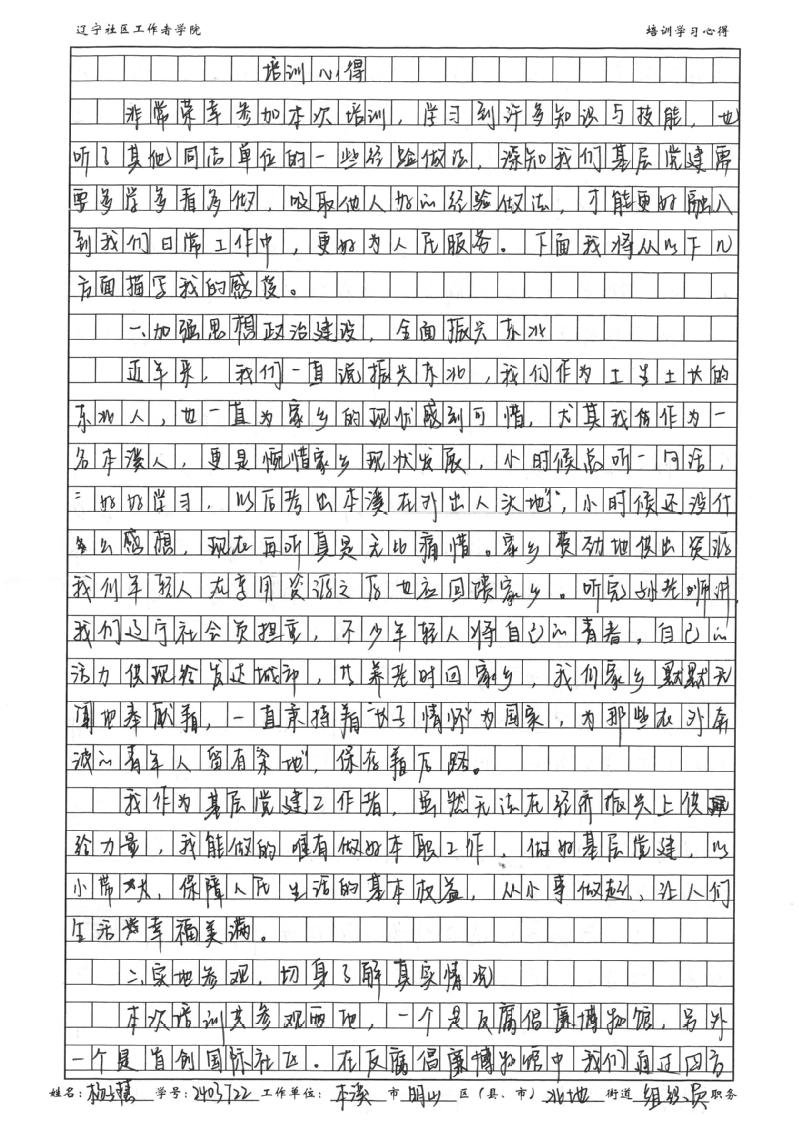 辽宁社区工作者学院 培训学习心得
培训心得
非常荣幸参加本次培训，学习到许多知识与技能，也
听了其他同志单位的一些经验做法，深知我们基层党建需
要多学多看多做，吸取他人好的经验做法，才能更好融入
到我们日常工作中，更好为人民服务。下面我将从以下几
方面描写我的感受。
一、加强思想政治建设，全面振兴东北
近年来，我们一直说振兴东北，我们作为土生土长的
东北人，也一直为家乡的现状感到可惜，尤其我作为一
名本溪人，更是惋惜家乡现状发展，小时候总听一句话，
“好好学习，以后考出本溪在外出人头地”，小时候还没什
么感想，现在再听真是无比痛惜。家乡费劲地供出资源
我们年轻人在享用资源之后也应回馈家乡。听完孙老师讲，
我们辽宁社会负担重，不少年轻人将自己的青春，自己的
活力供现给发达城市，共养老时回家乡，我们家乡默默无
闻地奉献着，一直秉持着“长子情怀”为国家，为那些在外奔
波的青年人留有余地，保存着后路。
我作为基层党建工作者，虽然无法在经济振兴上供
给力量，我能做的唯有做好本职工作，做好基层党建，以
小带大，保障人民生活的基本权益，从小事做起，让人们
生活幸福美满。
二、实地参观，切身了解真实情况
本次培训共参观两地，一个是反腐倡廉博物馆，另外
一个是首创国际社区。在反腐倡廉博物馆中我们通过四方
姓名： 学号：2403722 工作单位：本溪 市 明山 区（县、市） 北地 街道 组织员 职务